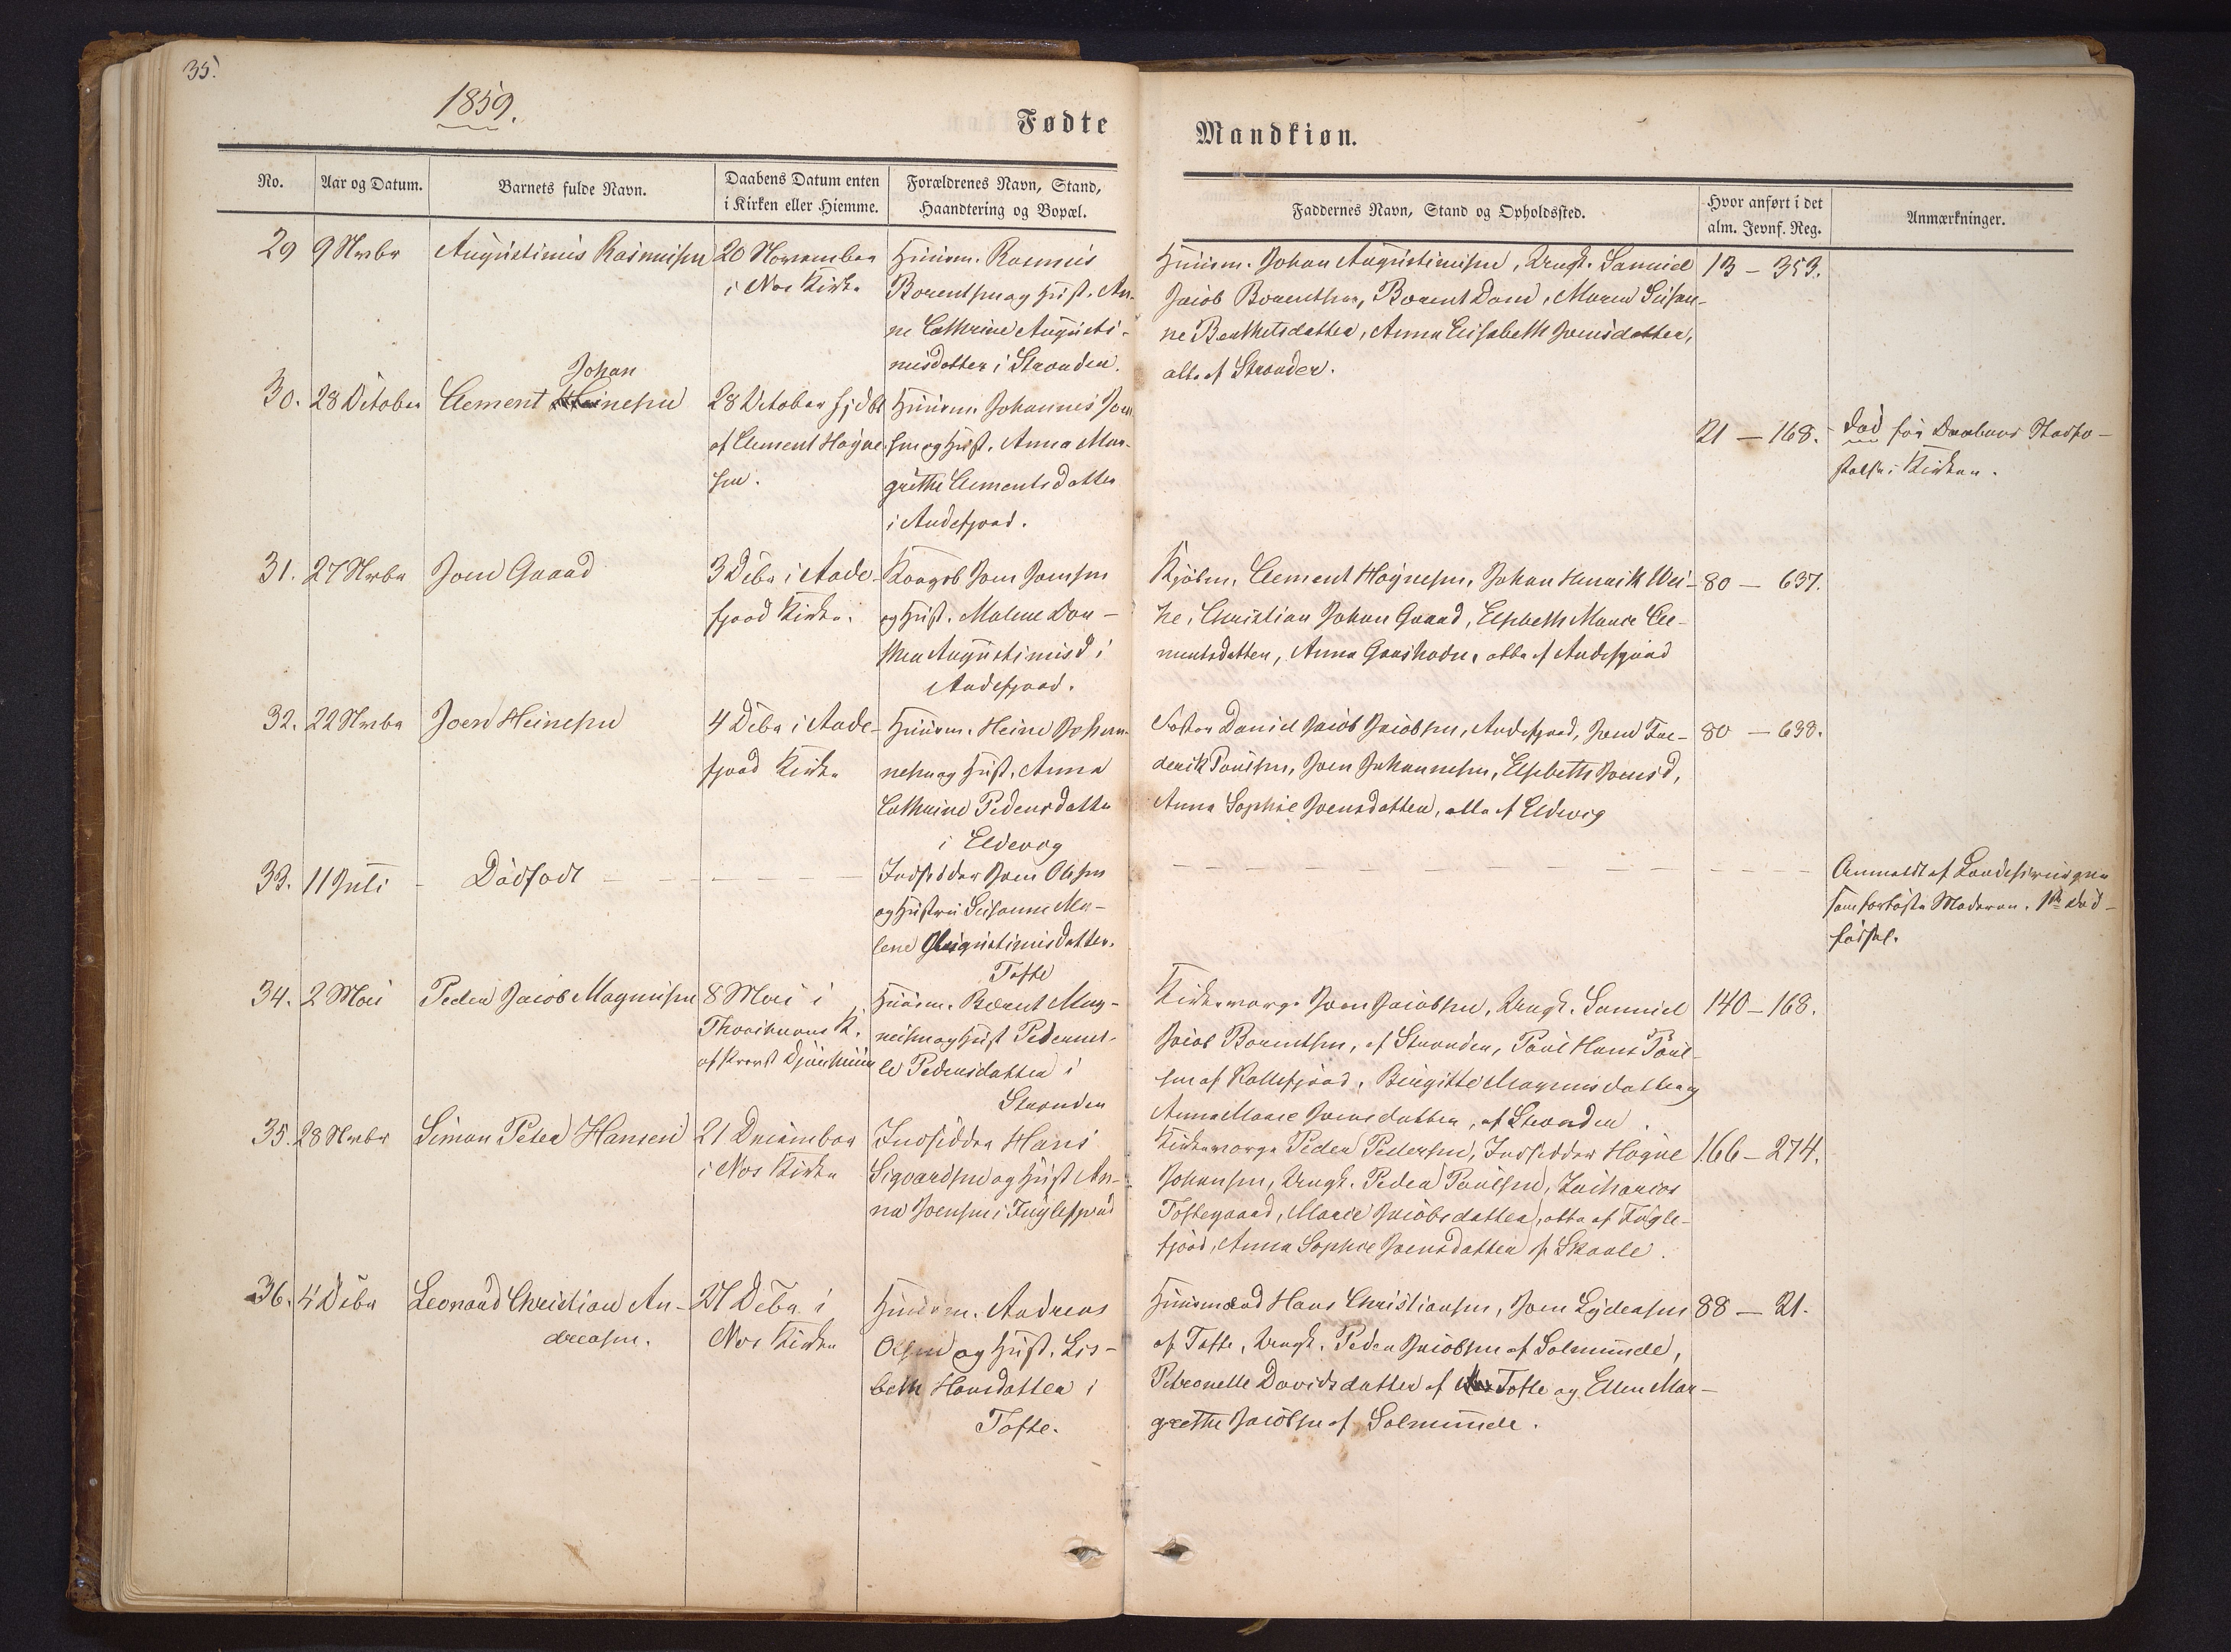 35.
1859.
Fødte
Mandkiøn.
No.
Aar og Datum.
Barnets fulde Navn.
Daabens Datum enten
i Kirken eller Hiemme.
Forældrenes Navn, Stand,
Haandtering og Bopæl.
Faddernes Navn, Stand og Opholdssted.
Hvor anført i det
alm. Jevnf. Reg.
Anmærkninger.
29
9 Nvbr
Augustinus Rasmussen
20 November
i Næs Kirke
Huusm. Rasmus
Berentsen og Hust. An-
ne Cathrine Augusti-
nusdatter i Strenden.
Huusm. Johan Augustinussen, Ungk. Samuel
Jacob Berentsen, Berent Dam, Maren Susan-
ne Benthetsdatter, Anna Elisabeth Joensdatter,
alle af Strender.
13 - 353.
30.
28 October
Johan
Clement
28 October hjdbt
af Clement Høgne-
sen.
Huusm. Johannes Joen
sen og Hust. Anna Mar-
grethe Clementsdatter
i Andefjord.
21 - 168.
Død før Daabens Stadfæ-
stelse i Kirken.
31.
27 Nvbr
Joen Gaard
3 Dcbr i Ande-
fjord Kirke.
Kongsb Joen Joensen
og Hust. Malene Dor-
thea Augustinusd i
Andefjord.
Kjøbm. Clement Høgnesen, Johan Henrik Wei-
he, Christian Johan Gaard, Elsebeth Marie Cle-
mentsdatter, Anna Gaashavn, alle af Andefjord
80 - 637.
32.
22 Nvbr
Joen Heinesen
4 Dcbr i Ande-
fjord Kirke
Huusm. Heine Johan-
nesen og Hust. Anna
Cathrine Pedersdatter
i Eldevig
Daniel Jacob Jacobsen, Andefjord, Joen Fre-
derik Poulsen, Joen Johannesen, Elsebeth Joensd,
Anna Sophie Joensdatter, alle af Eldevig
80 - 638.
33.
11 Juli
Dødfødt
Indsidder Joen Olesen
og Hustru Susanne Ma-
lene Augustinusdatter.
Tofte
Anmeldt af Landchirurgen
som forløste Moderen. 1ste Død-
fødsel.
34.
2 Mai
Peder Jacob Magnussen
8 Mai i
Thorshavns K.
af Provst Djørhuus
Huusm. Berent Mag-
nussen og Hust Pedernel-
le Pedersdatter i
Strenden
Kirkeværge Joen Jacobsen, Ungk. Samuel
Jacob Berentsen, af Strenden, Poul Hans Poul-
sen af Kollefjord, Birgitte Magnusdatter og
Anna Marie Joensdatter, af Strenden.
140 - 168.
35.
28 Nvbr
Simon Peter Hansen
21 December
i Næs Kirke
Indsidder Hans
Sigvardsen og Hust An-
na Joensen i Fuglefjord
Kirkeværge Peder Pedersen, Indsidder Høgne
Johansen, Ungk. Peder Poulsen, Zacharias
Toftegaard, Marie Jacobsdatter, alle af Fugle-
fjord, Anna Sophie Joensdatter af Skaale.
166 - 274.
36.
4 Dcbr
Leonard Christian An-
dreasen.
27 Dcbr i
Næs Kirke
Huusm. Andreas
Olsen og Hust. Lis-
beth Hansdatter i
Tofte.
Huusmænd Hans Christiansen, Joen Lydersen
af Tofte, Ungk. Peder Jacobsen af Solmunde,
Petronelle Davidsdatter af Tofte og Ellen Mar-
grethe Jacobsen af Solmunde.
88 - 21.